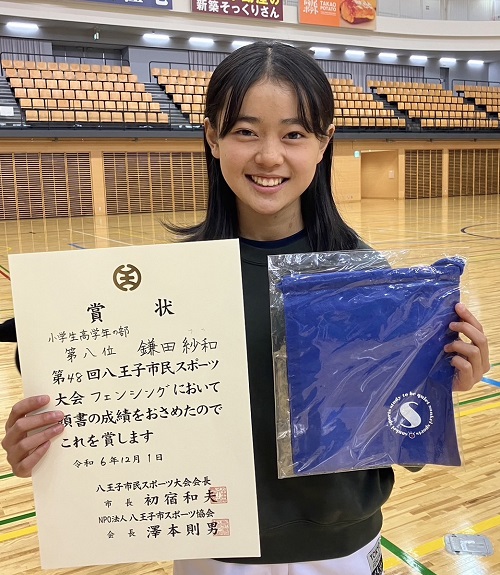 新築そっくりさん
TAKAO
POTATO
賞状
小学生高学年の部
第八位 鎌田紗和
第48回八王子市民スポーツ
大会フェンシングにおいて
頭書の成績をおさめたので
これを賞します
令和6年12月1日
八王子市民スポーツ大会会長
市長 初宿和夫
NPO法人八王子市スポーツ協会
会長 澤本則男
S